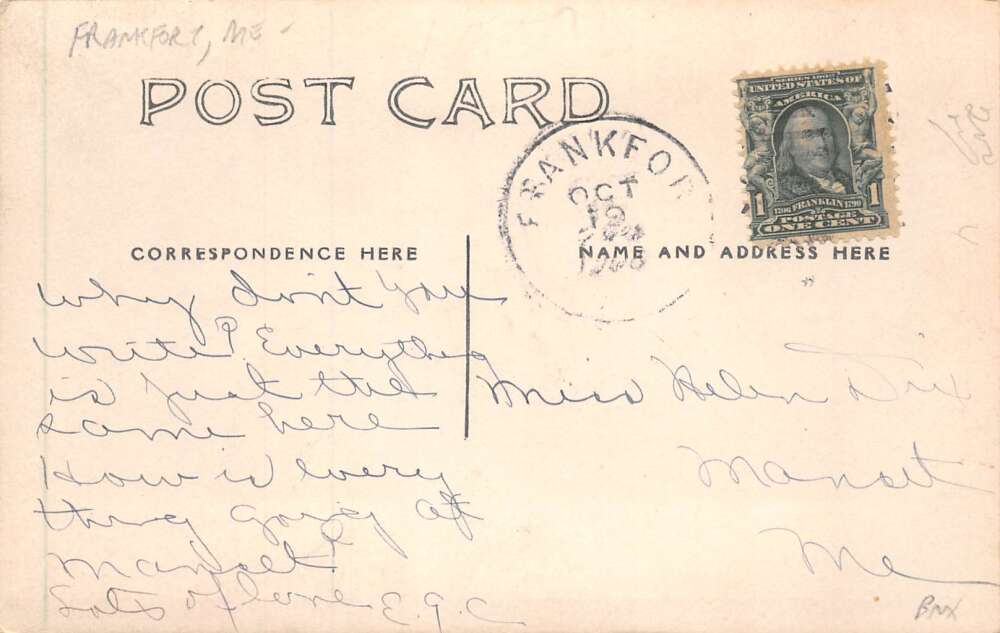 FRANKFORT, ME -
POST CARD
FRANKFOR
OCT
19
1908
SERIES 1902
UNITED STATES OF
AMERICA
1 1706 FRANKLIN 1790 1
POSTAGE
ONE CENT
CORRESPONDENCE HERE
NAME AND ADDRESS HERE
Why don't you
write? Everything
is just the
same here
How is every
thing going at
Manset?
Lots of love E.G.C
Miss Helen Dix
Manset
Me
BNX